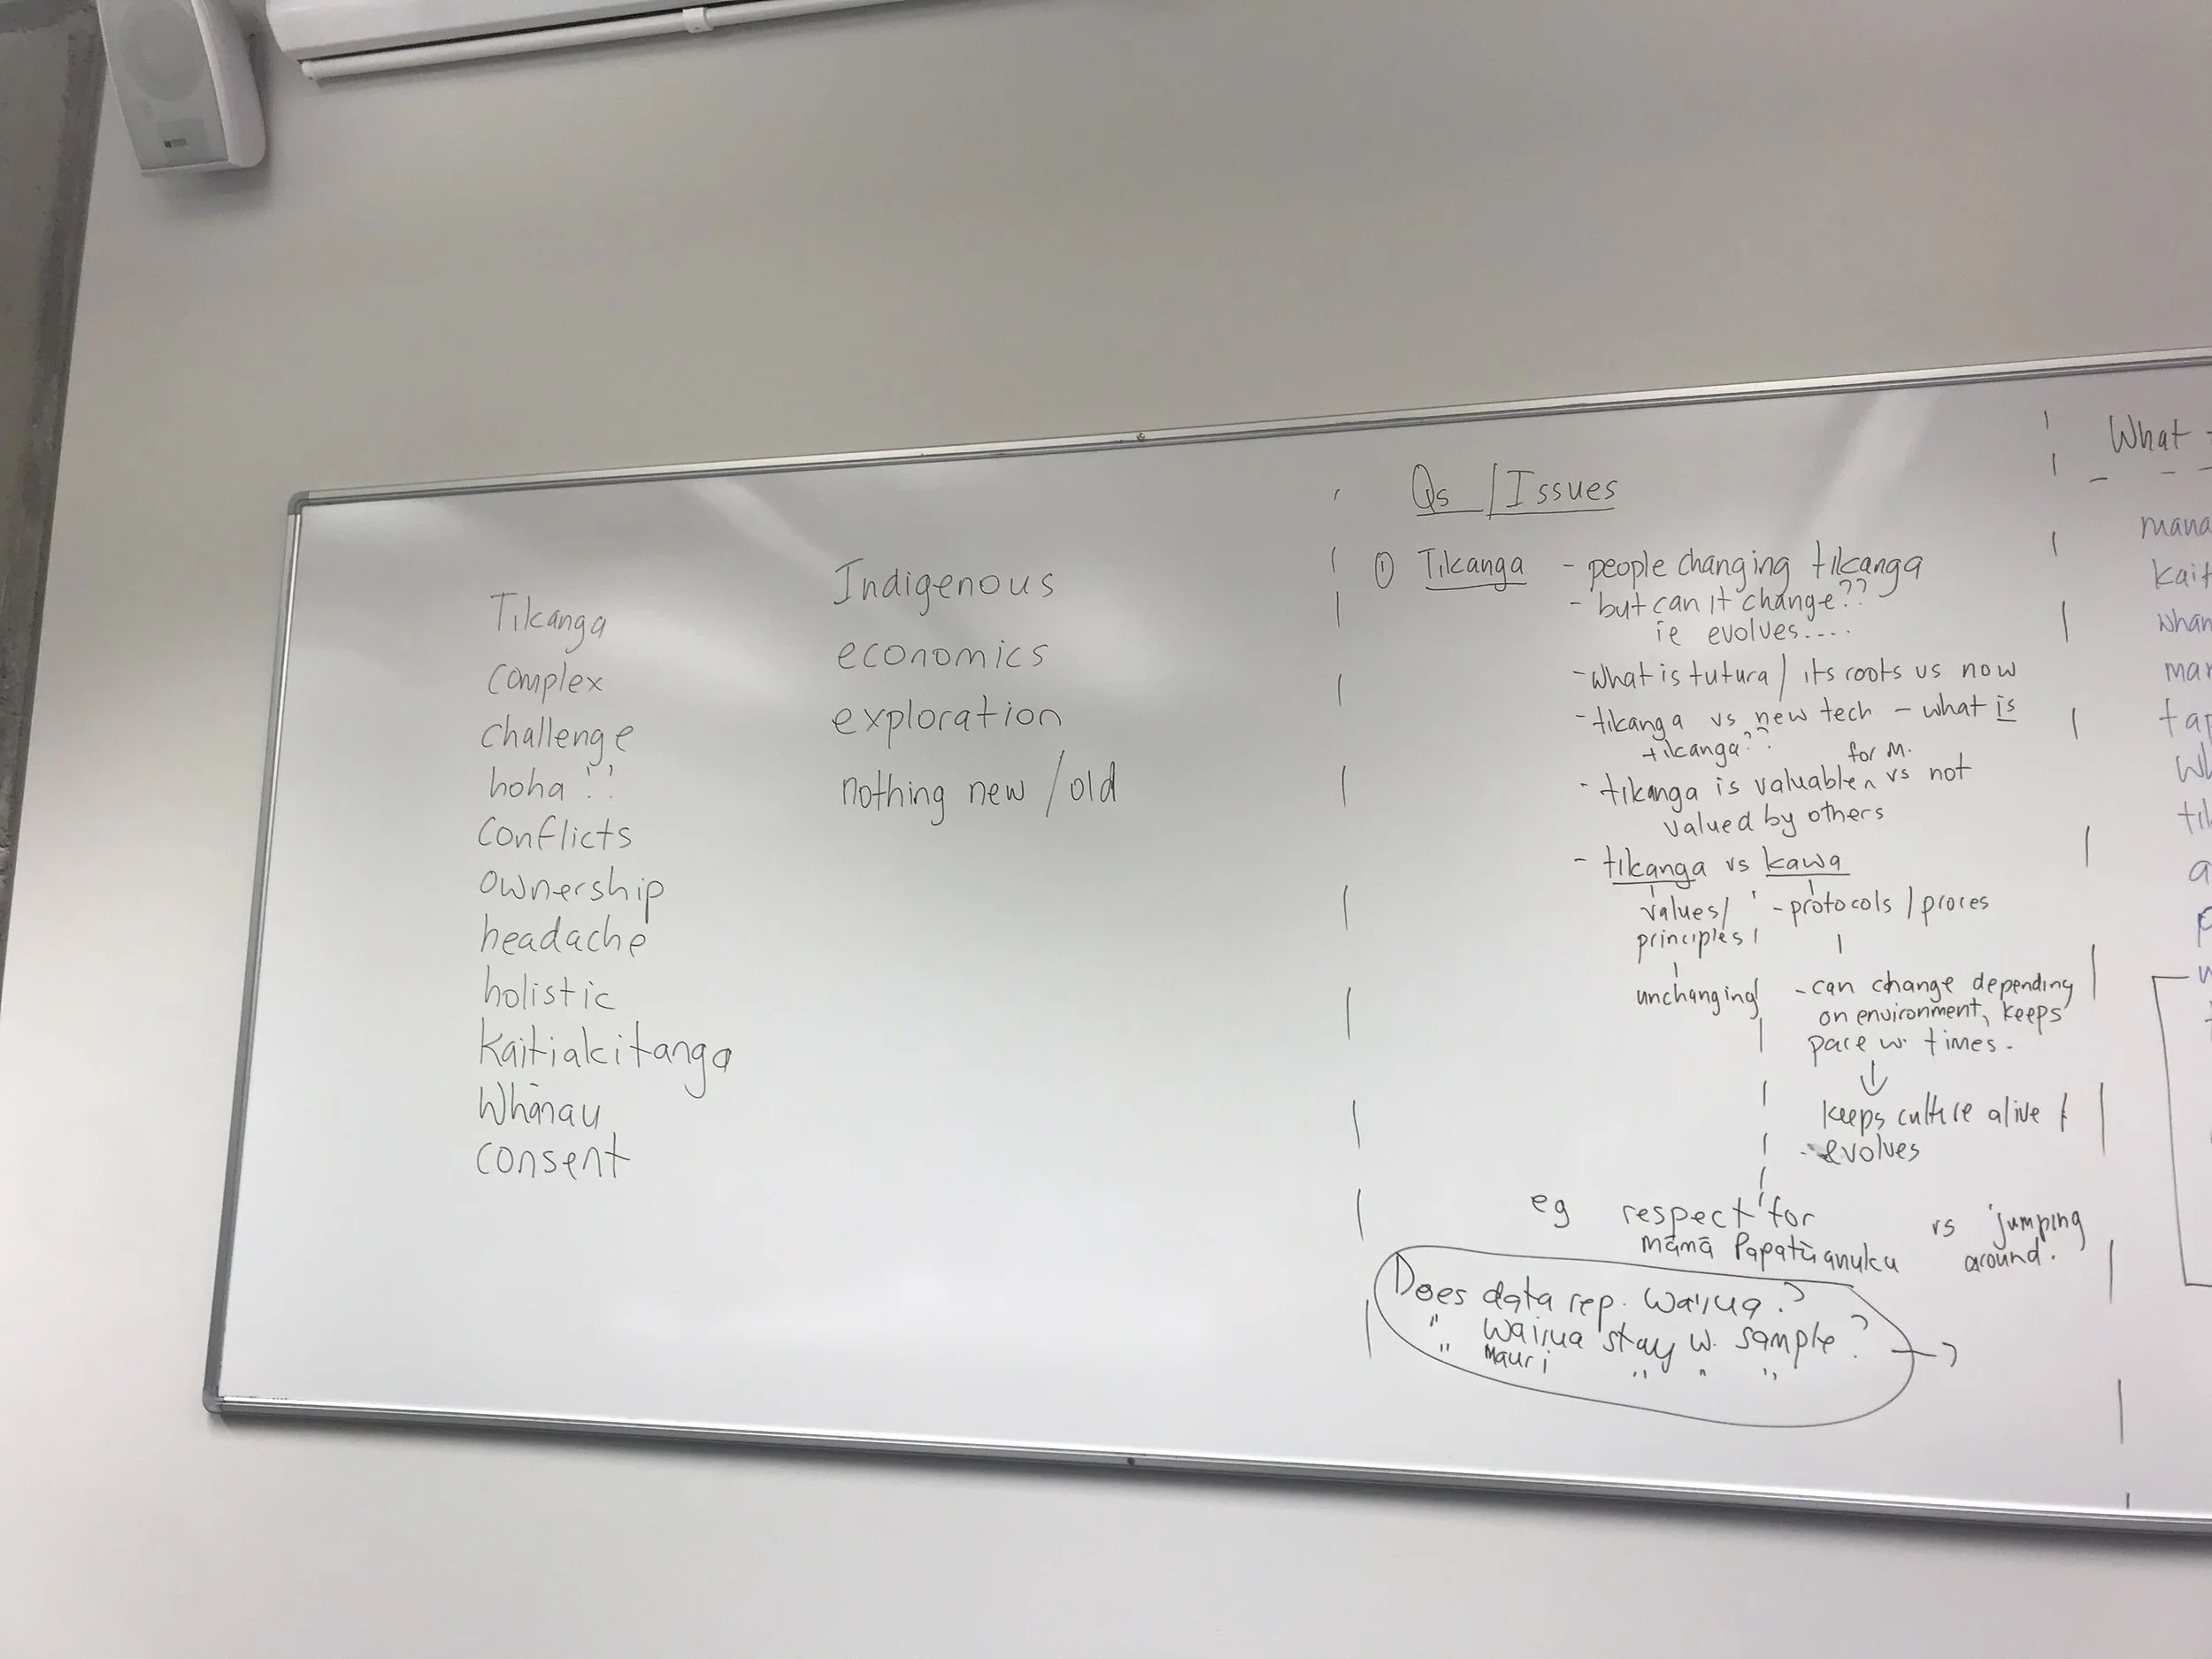 Tikanga
complex
challenge
hoha !!
conflicts
ownership
headache
holistic
Kaitiakitanga
Whānau
consent
Indigenous
economics
exploration
nothing new / old
Qs / Issues
① Tikanga - people changing tikanga
- but can it change??
ie evolves....
- what is tutura / its roots us now
- tikanga vs new tech - what is
tikanga??
for M.
- tikanga is valuable ^ vs not
valued by others
- tikanga vs kawa
values/
principles
- protocols / proces
unchanging
- can change depending
on environment, keeps
pace w. times.
↓
keeps culture alive &
- evolves
eg respect for
māmā Papatūanuku
vs jumping
around.
Does data rep. wairua?
" wairua stay w. sample?
" mauri " " "
What
mana
kait
whan